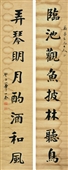 臨池觀魚披林聽鳥
弄琴明月酌酒和風